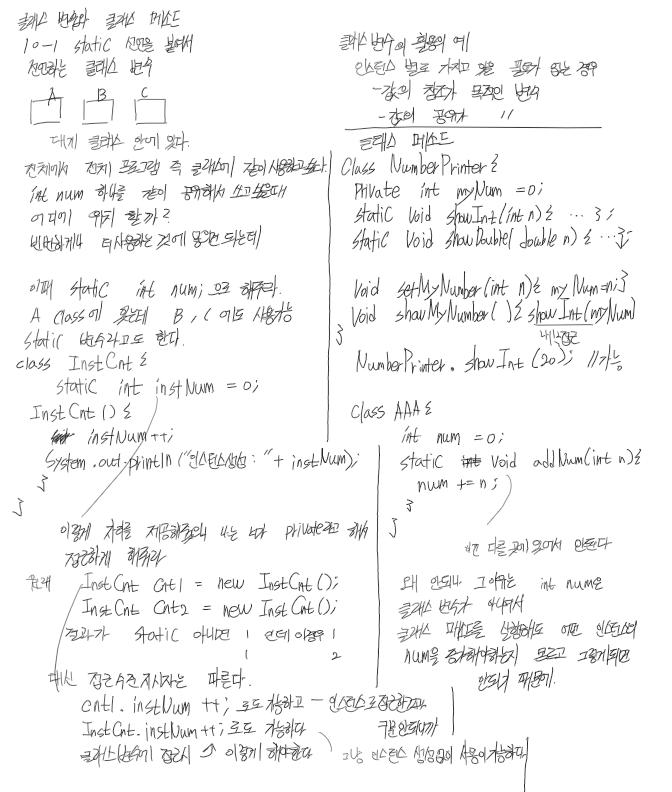 클래스 변수와 클래스 메소드
10-1 static 선언을 붙여서
선언하는 클래스 변수
A B C
대게 클래스 안에 있다.
전체에서 전체 프로그램 즉 클래스에 같이 사용하고싶다.
int num 하나를 같이 공유해서 쓰고싶을때
어디에 위치 할까?
빈번하게 더 사용하는 것에 놓으면 되는데
이때 static int num; 으로 해주라.
A class에 있는데 B, C 에도 사용가능
static 변수라고도 한다.
class InstCnt {
static int instNum = 0;
InstCnt () {
instNum++;
System.out.println ("인스턴스생성 : " + instNum);
}
}
이렇게 자리를 제공해줄테니 나는 너가 private라고 해서
접근하게 해줘라
원래 InstCnt cnt1 = new InstCnt();
InstCnt cnt2 = new InstCnt();
결과가 static 아니면 1 인데 이경우 1
1 2
대신 접근수준지시자는 따른다.
cnt1.instNum ++; 로도 가능하고 - 인스턴스로 접근한건지
구분안되니까
InstCnt.instNum++; 로도 가능하다
클래스변수에 접근시 ↗ 이렇게 해야한다
그냥 인스턴스 생성없이 사용이 가능하다
클래스 변수의 활용의 예
인스턴스 별로 가지고 있을 필요가 없는 경우
- 값의 참조가 목적인 변수
- 값의 공유가 "
클래스 메소드
Class NumberPrinter {
Private int myNum = 0;
static void showInt(int n) { ... };
static void showDouble( double n) { ... };
Void setMyNumber(int n){ my Num=n;}
Void showMyNumber ( ) { showInt(myNum)
}
내부접근
NumberPrinter.showInt (20); //가능
Class AAA {
int num = 0;
static void addNum(int n){
num += n;
}
}
다른 곳에 있어서 안된다
왜 안되냐 그 이유는 int num은
클래스 변수가 아니어서
클래스 메소드를 실행해도 어떤 인스턴스의
num을 증가해야하는지 모르고 그렇게되면
안되기 때문에.